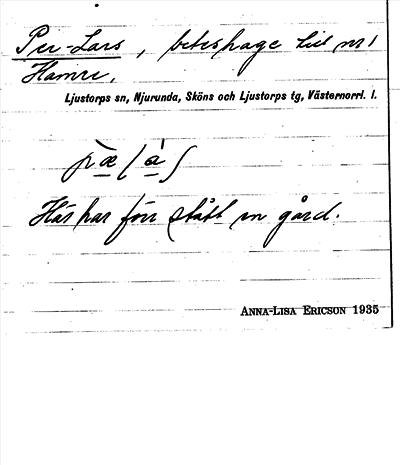 Per-Lars, beteshage till nr 1
Hamre.
Ljustorps sn, Njurunda, Sköns och Ljustorps tg, Västernorrl. l.
Här har förr stått en gård.
ANNA-LISA ERICSON 1935